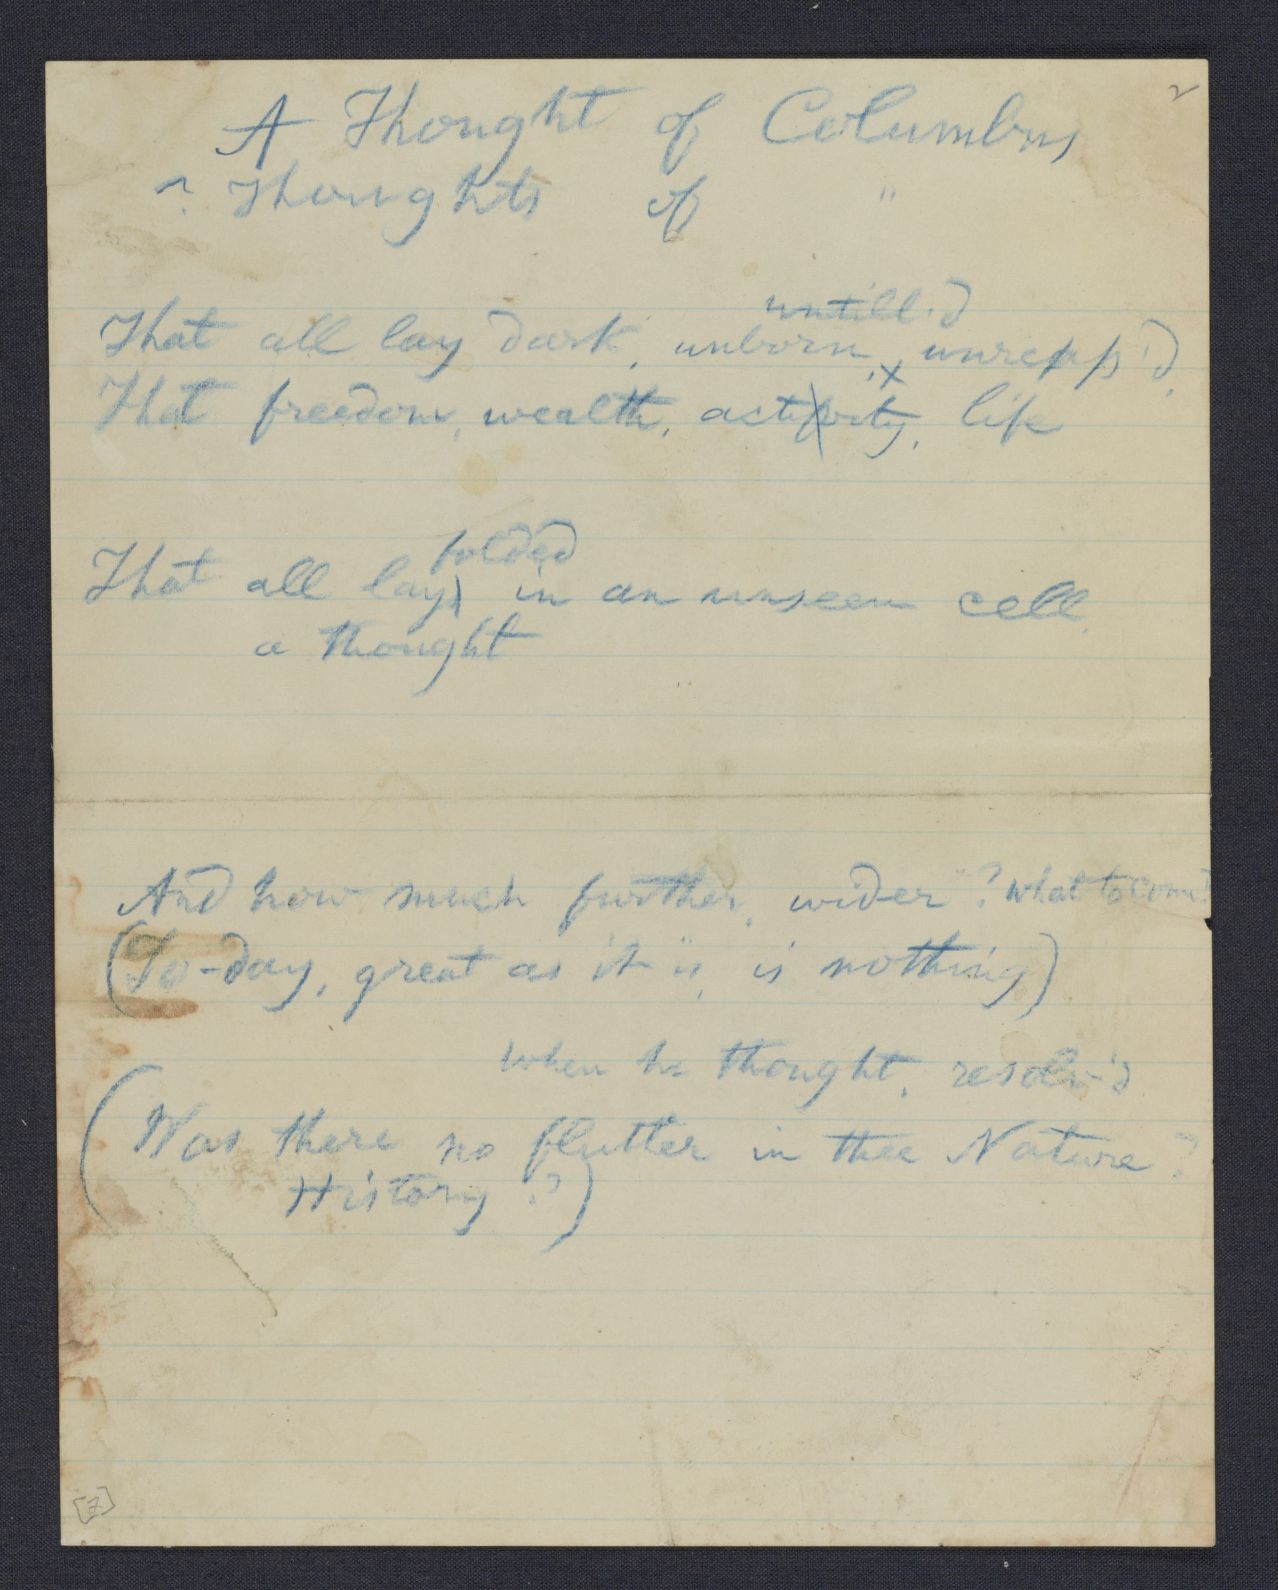 2
A Thought of Columbus
? Thoughts of "
untill'd
That all lay dark, unborn, unreap'd,
That freedom, wealth, activity, life
folded
That all lay in an unseen cell.
a thought
And how much further, wider? what to come?
(To-day, great as it is, is nothing)
when he thought, resolv'd
(Was there no flutter in thee Nature?
History?)
[2]